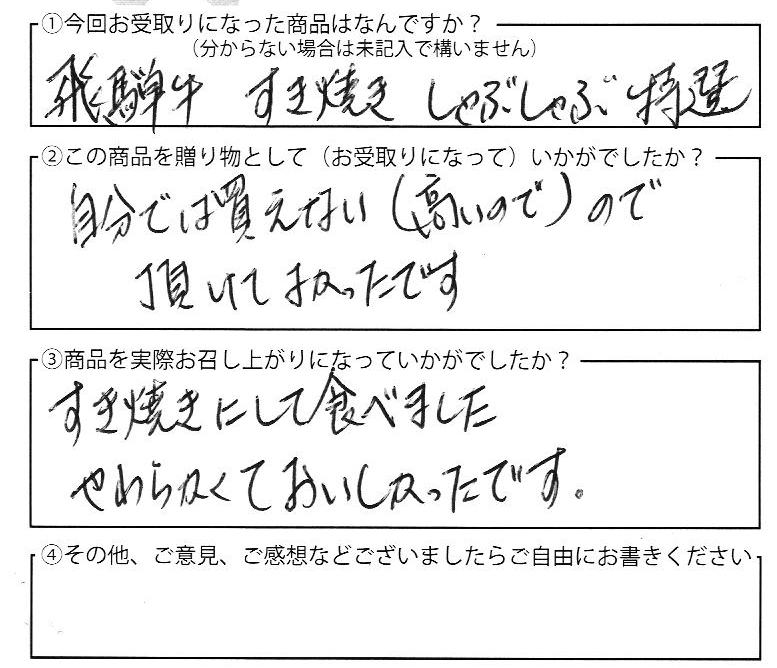 ①今回お受取りになった商品はなんですか？
（分からない場合は未記入で構いません）
飛騨牛 すき焼き しゃぶしゃぶ 特選
②この商品を贈り物として（お受取りになって）いかがでしたか？
自分では買えない（高いので）ので
頂けてよかったです
③商品を実際お召し上がりになっていかがでしたか？
すき焼きにして食べました
やわらかくておいしかったです。
④その他、ご意見、ご感想などございましたらご自由にお書きください